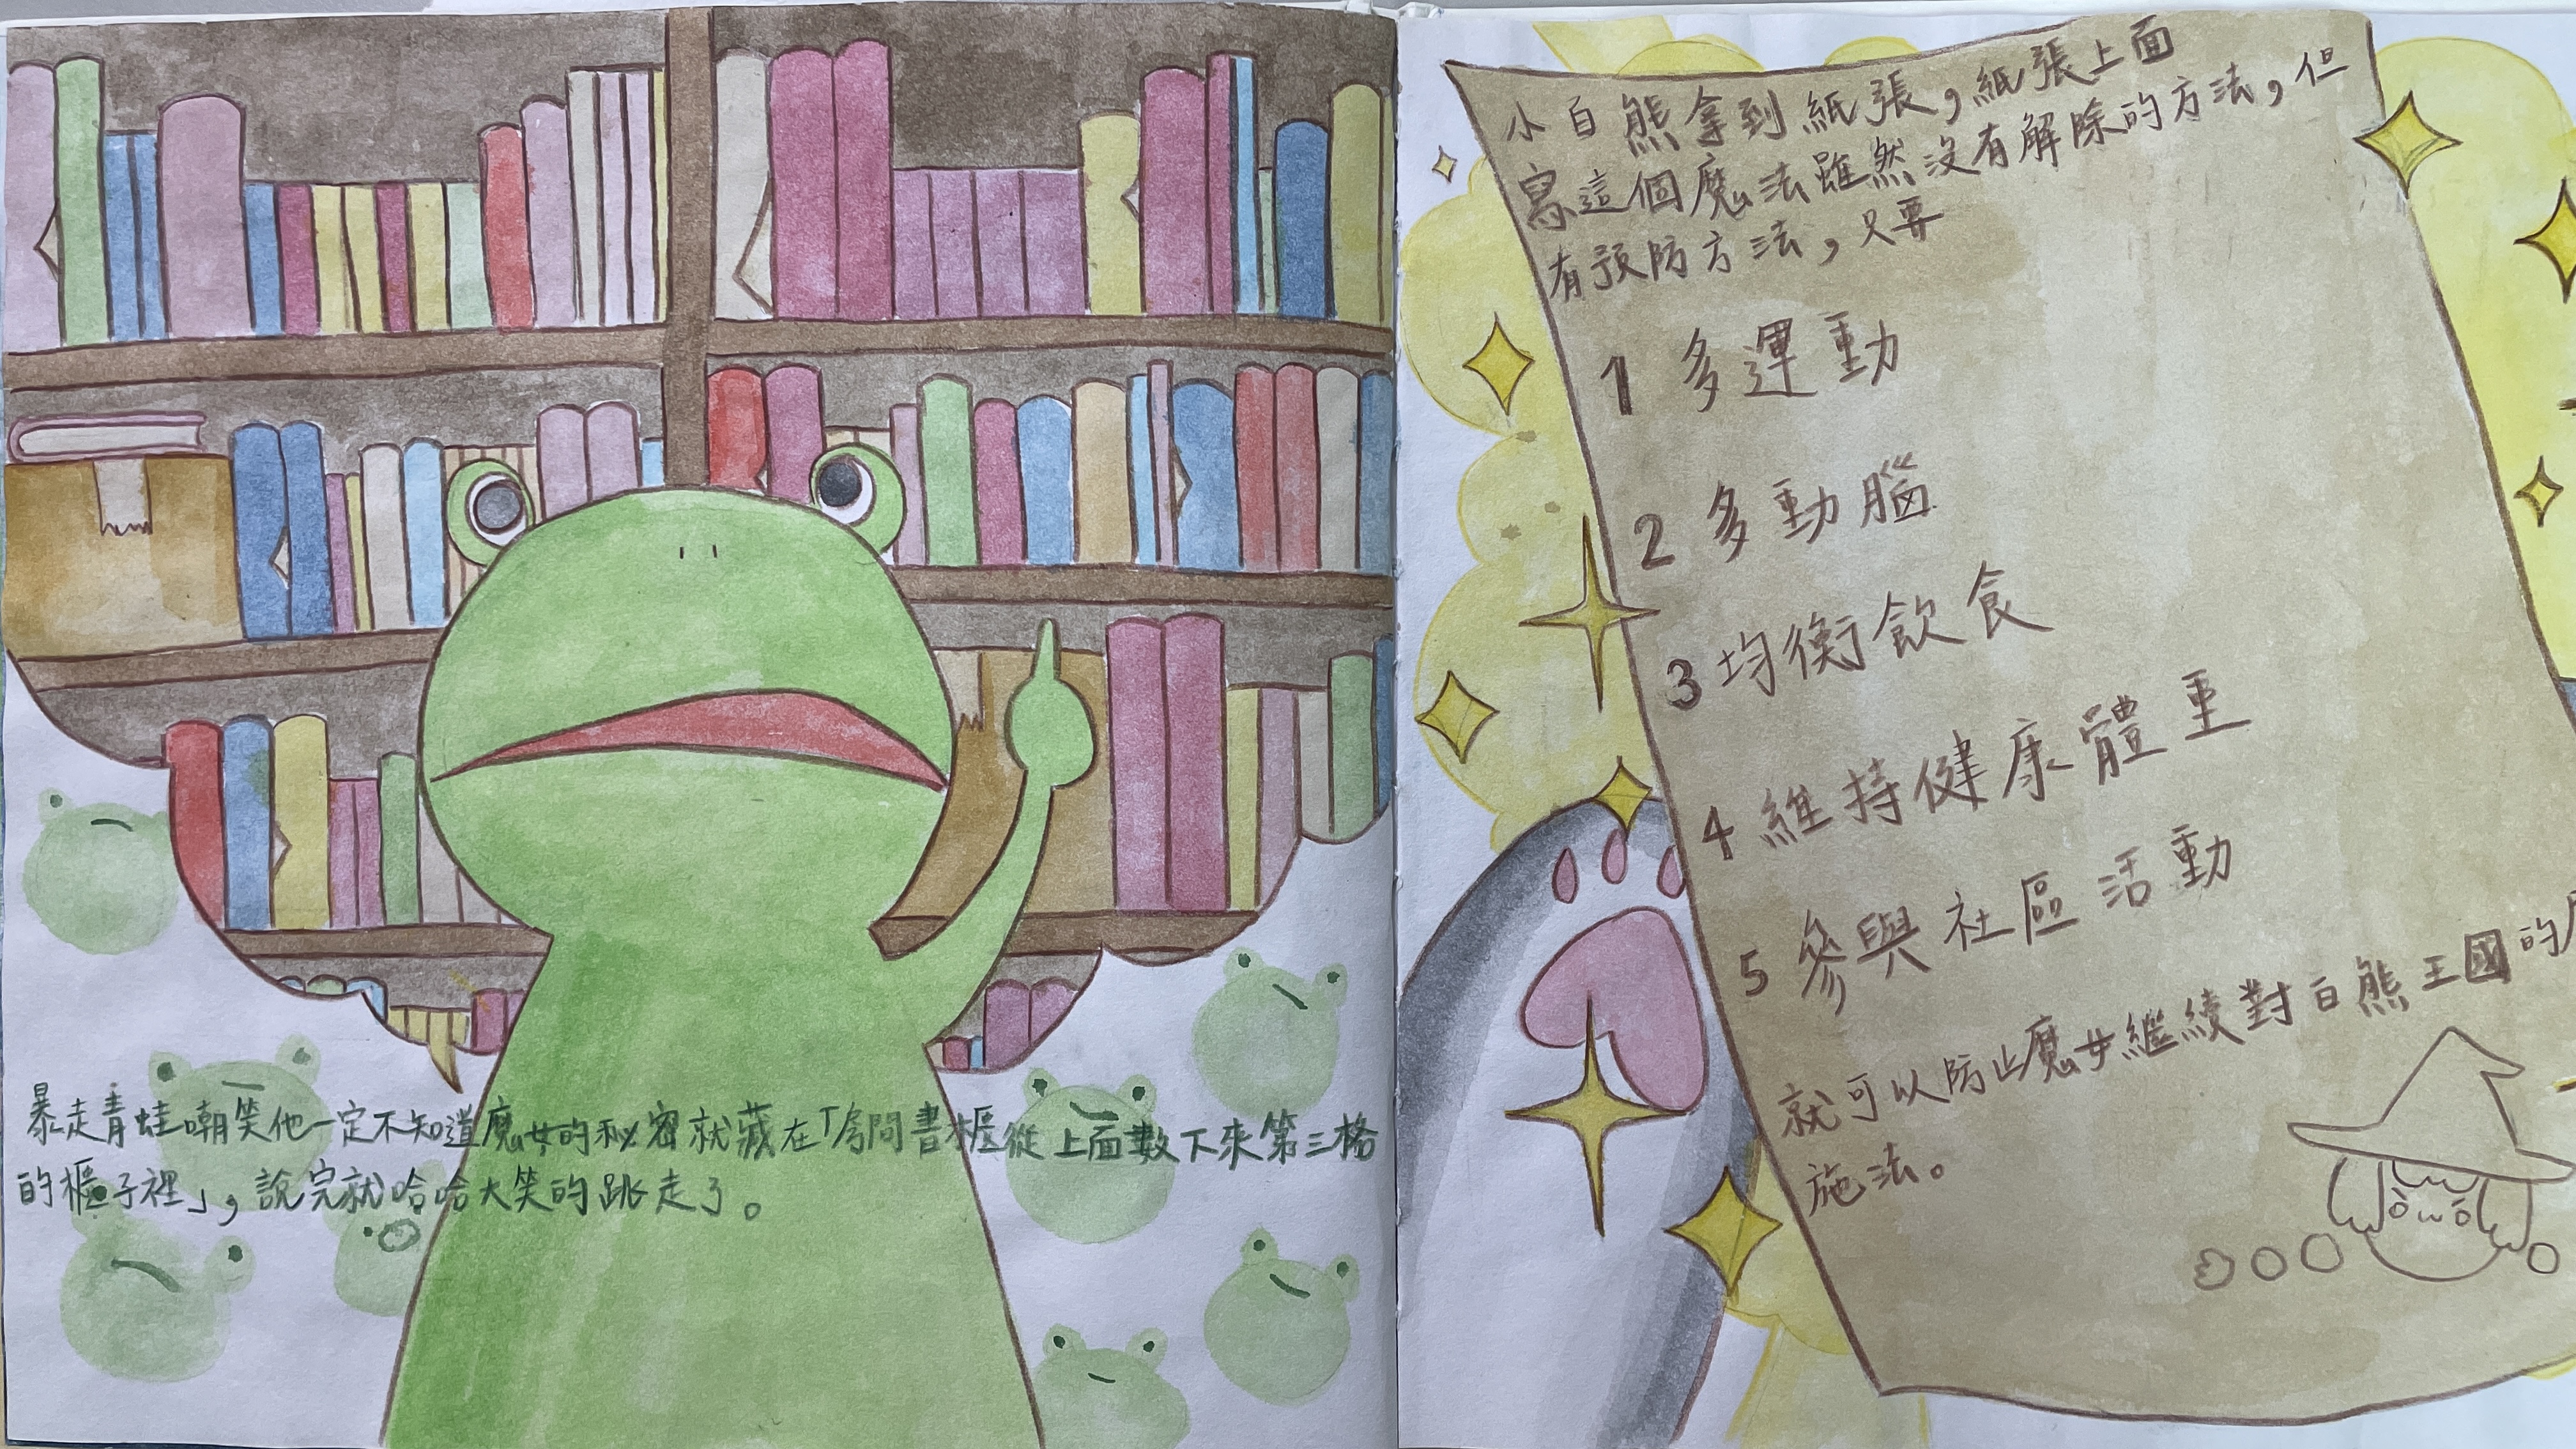 暴走青蛙嘲笑他一定不知道魔女的秘密就藏在「房間書櫃從上面數下來第三格
的櫃子裡」,說完就哈哈大笑的跳走了。
小白熊拿到紙張,紙張上面
寫這個魔法雖然沒有解除的方法,但
有預防方法,只要
1 多運動
2 多動腦
3 均衡飲食
4 維持健康體重
5 參與社區活動
就可以防止魔女繼續對白熊王國的
施法。